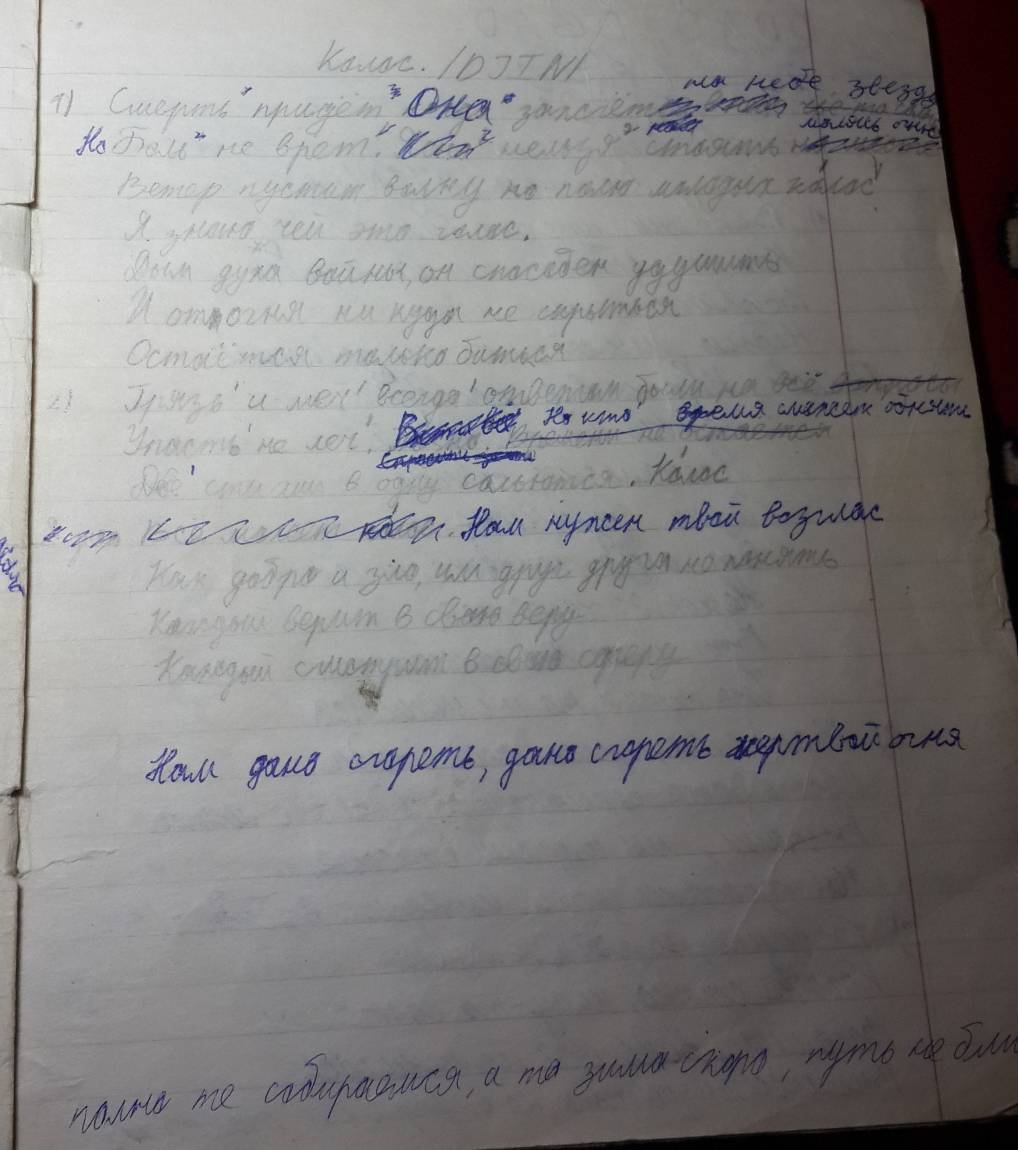 Колос. /DJTN/
на небе звезду
1) Смерть придёт Она зажжёт
молишь огню
Но Боль не врёт. нельзя стоять
Ветер пустит волну по полю молодых колос
Я знаю чей это голос.
Дым духа войны, он способен удушить
И от огня ни куда не скрыться
Остаётся только биться
2) Грязь и меч всегда ответом были на всё вопросы
Но кто время сможет обнять
Упасть не леч. Времени не остается
Две стихии в одну сольются. Колос
Нам нужен твой возглас
Как добро и зло, им друг друга не понять
Каждый верит в свою веру
Каждый смотрит в свою сферу
Нам дано сгореть, дано сгореть жертвой огня
полно те собираемся, а то зима скоро, путь не бли